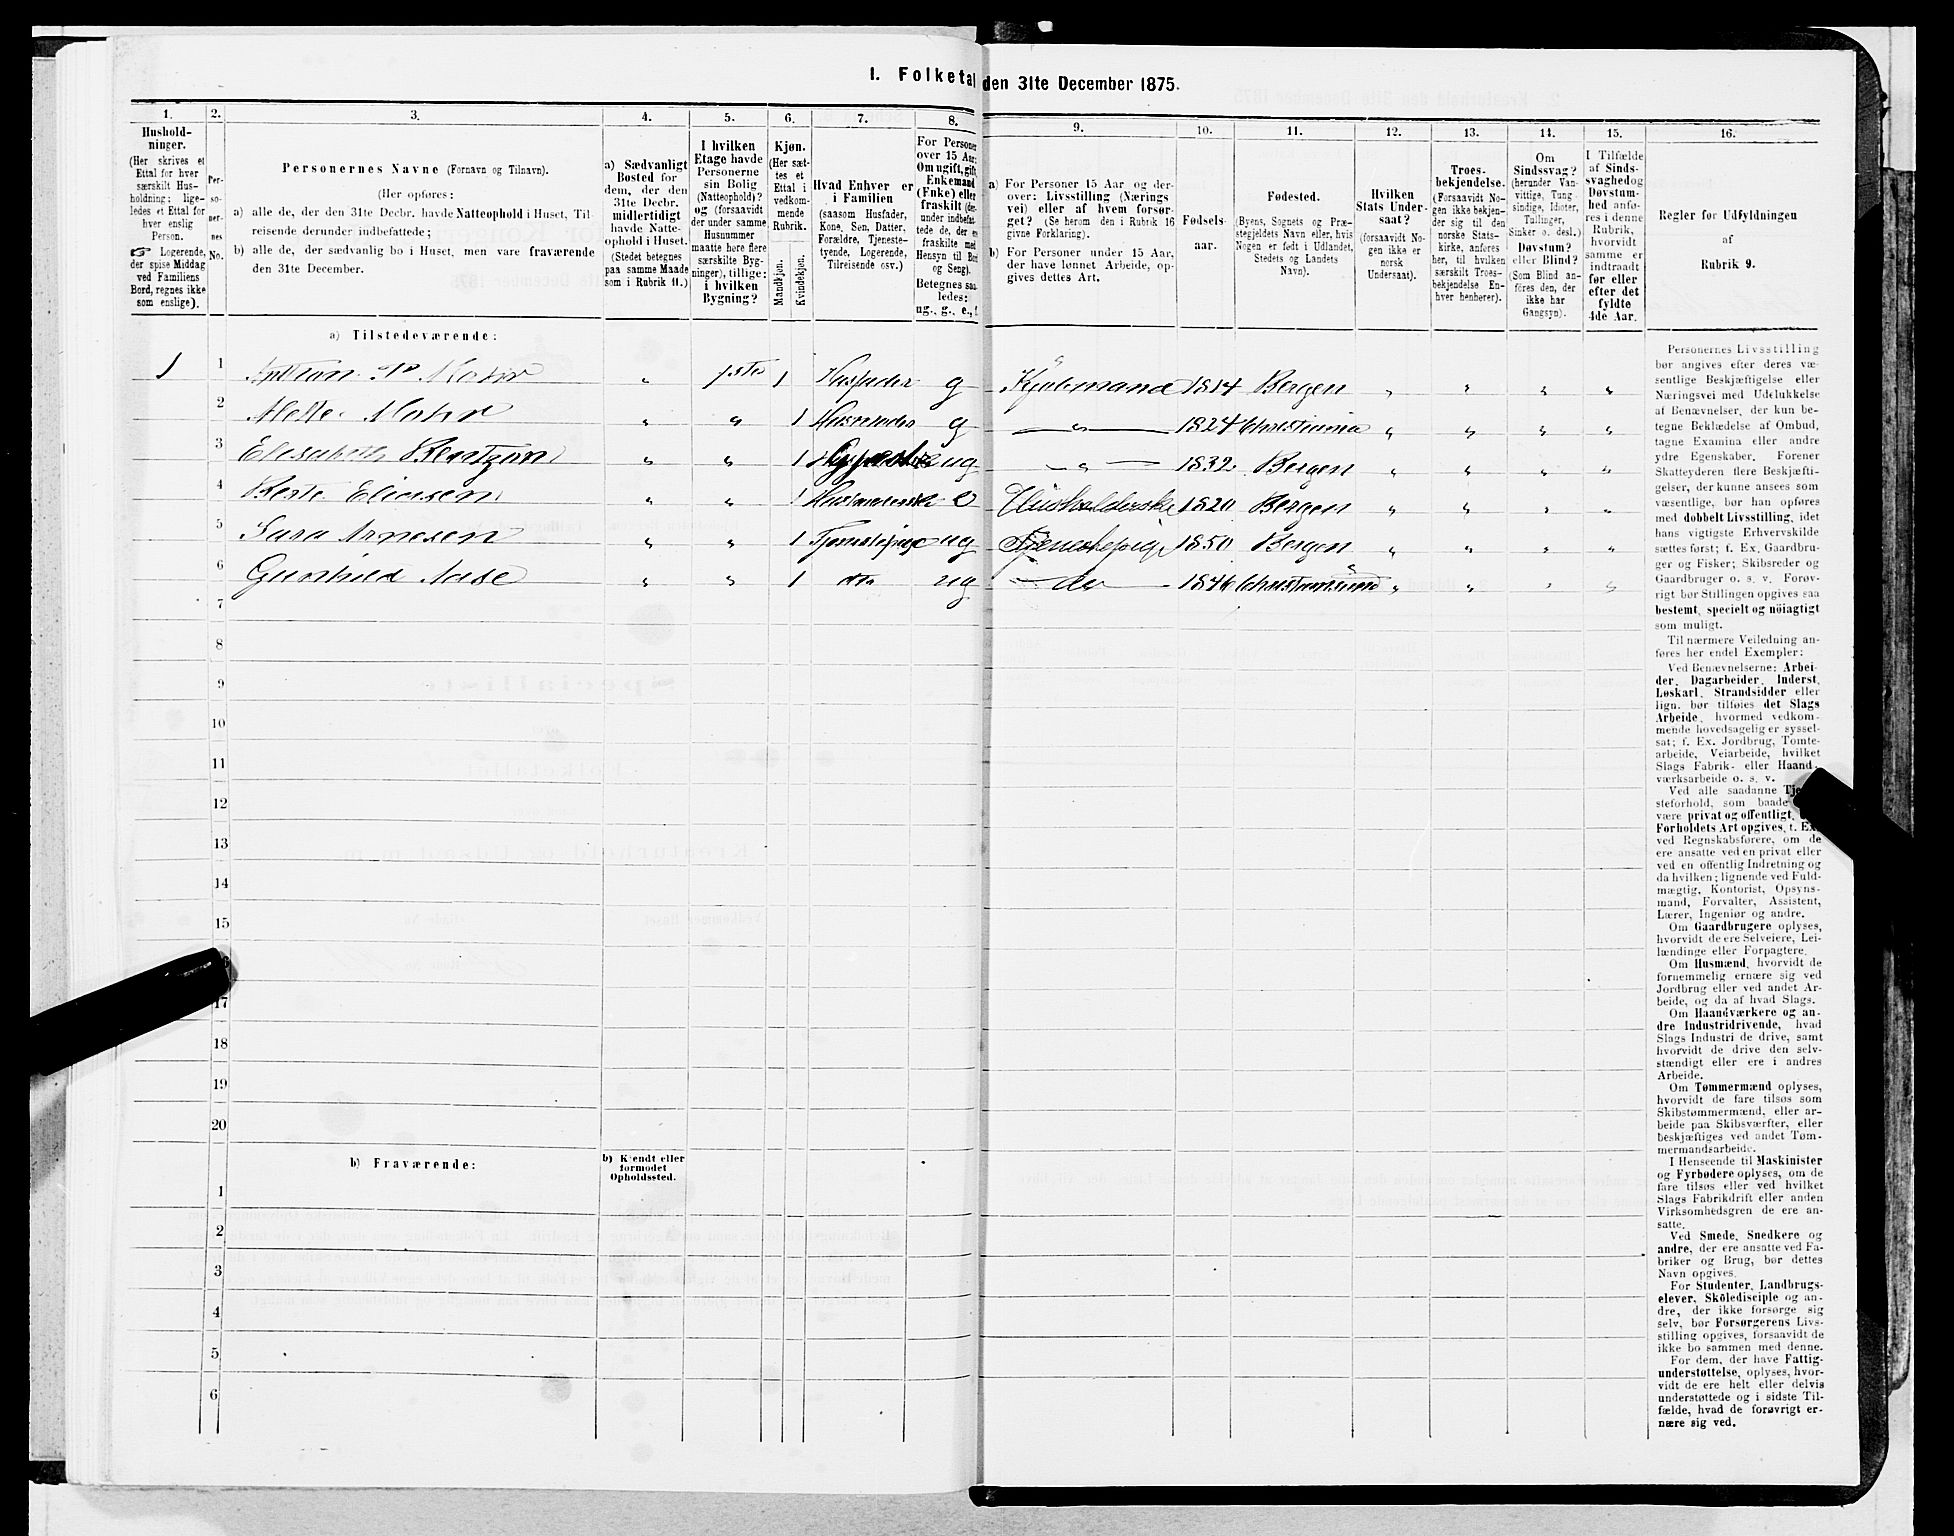 I. Folketal den 31te December 1875.
1.
Hushold-
ninger.
(Her skrives et
Ettal for hver
særskilt Hus-
holdning; lige-
ledes et Ettal for
hver enslig
Person.
☞ Logerende,
der spise Middag
ved Familiens
Bord, regnes ikke
som enslige).
2.
Per-
so-
ner-
nes
No.
3.
Personernes Navne (Fornavn og Tilnavn).
(Her opføres:
a) alle de, der den 31te Decbr. havde Natteophold i Huset, Til-
reisende derunder indbefattede;
b) alle de, der sædvanlig bo i Huset, men vare fraværende
den 31te December.
4.
a) Sædvanligt
Bosted for
dem, der den
31te Decbr.
midlertidigt
havde Natte-
ophold i Huset.
(Stedet betegnes
paa samme Maade
som i Rubrik 11.)
5.
I hvilken
Etage havde
Personerne
sin Bolig
(Natteophold)?
og (forsaavidt
der under samme
Husnummer
maatte høre flere
særskilte Byg-
ninger), tillige:
i hvilken
Bygning?
6.
Kjøn.
(Her sæt-
tes et
Ettal i
vedkom-
mende
Rubrik.
Mandkjøn.
Kvindekjøn.
7.
Hvad Enhver er
i Familien
(saasom Husfader,
Kone, Søn, Datter,
Forældre, Tjeneste-
tyende, Logerende,
Tilreisende osv.)
8.
For Personer
over 15 Aar:
Om ugift, gift,
Enkemand
(Enke) eller
fraskilt (der-
under indbefat-
tede de, der ere
fraskilte med
Hensyn til Bord
og Seng).
Betegnes saa-
ledes:
ug., g., e., f.
9.
a) For Personer 15 Aar og der-
over: Livsstilling (Nærings
vei) eller af hvem forsør-
get? (Se herom den i Rubrik 16
givne Forklaring).
b) For Personer under 15 Aar,
der have lønnet Arbeide, op-
gives dettes Art.
10.
Fødsels-
aar.
11.
Fødested.
(Byens, Sognets og Præ-
stegjeldets Navn eller, hvis
Nogen er født i Udlandet,
Stedets og Landets
Navn).
12.
Hvilken
Stats Under-
saat?
(forsaavidt No-
gen ikke er
norsk
Undersaat).
13.
Troes-
bekjendelse.
(Forsaavidt No-
gen ikke bekjen-
der sig til den
norske Stats-
kirke, anføres
her, til hvilken
særskilt Troes-
bekjendelse En-
hver henhører).
14.
Om
Sindssvag?
(herunder Van-
vittige, Tung-
sindige, Idioter,
Tullinger,
Sinker o. desl.)
Døvstum?
eller Blind?
(Som Blind an-
føres den, der
ikke har
Gangsyn).
15.
I Tilfælde
af Sinds-
svaghed og
Døvstum-
hed anfø-
res i denne
Rubrik,
hvorvidt
samme er
indtraadt
før eller
efter det
fyldte
4de Aar.
16.
Regler før Udfyldningen
af
Rubrik 9.
a) Tilstedeværende:
1 1 Mohr " 1ste 1 Husfader g Kjøbmand 1814 Bergen " " " "
2 Mette Mohr " " 1 Husmoder g " 1824 Christiania " " " "
3 Elisabeth " " 1 ug " 1832 Bergen " " " "
4 Berte Eliasen " " 1 e Husholderske 1820 Bergen " " " "
5 Sara Arnesen " " 1 Tjenestepige ug Tjenestepige 1850 Bergen " " " "
6 Gunhild Aase " " 1 do ug do 1846 Christiansund " " " "
7
8
9
10
11
12
13
14
15
17
18
19
20
b) Fraværende:
b) Kjendt eller
formodet
Opholdssted.
1
2
3
4
5
6
Personernes Livsstilling
bør angives efter deres væ-
sentlige Beskjæftigelse eller
Næringsvei med Udelukkelse
af Benævnelser, der kun be-
tegne Beklædelse af Ombud,
tagne Examina eller andre
ydre Egenskaber. Forener
Skatteyderen flere Beskjæfti-
gelser, der kunne ansees som
væsentlige, bør han opføres
med dobbelt Livsstilling, idet
hans vigtigste Erhvervskilde
sættes først; f. Ex. Gaardbru-
ger og Fisker; Skibsreder og
Gaardbruger o. s. v. Forøv-
rigt bør Stillingen opgives saa
bestemt, specielt og nöiagtigt
som muligt.
Til nærmere Veiledning an-
føres her endel Exempler:
Ved Benævnelserne: Arbei-
der, Dagarbeider, Inderst,
Løskarl, Strandsidder eller
lign. bør tilføies det Slags
Arbeide, hvormed vedkom-
mende hovedsagelig er syssel-
sat; f. Ex. Jordbrug, Tomte-
arbeide, Veiarbeide, hvilket
Slags Fabrik- eller Haand-
værksarbeide o. s. v.
Ved alle saadanne
steforhold, som baade
være privat og offentligt,
Forholdets Art opgives, t. Ex.
ved Regnskabsførere, om de
ere ansatte ved en privat eller
ved en offentlig Indretning og
da hvilken; lignende ved Fuld-
mægtig, Kontorist, Opsyns-
mand, Forvalter, Assistent,
Lærer, Ingeniør og andre.
Om Gaardbrugere oplyses,
hvorvidt de ere Selveiere, Lei-
lændinge eller Forpagtere.
Om Husmænd, hvorvidt de
fornemmelig ernære sig ved
Jordbrug eller ved andet Ar-
beide, og da af hvad Slags.
Om Haandværkere og an-
dre Industridrivende, hvad
Slags Industri de drive, samt
hvorvidt de drive den selv-
stændigt eller ere i andres
Arbeide.
Om Tømmermænd oplyses,
hvorvidt de fare tilsøs som
Skibstømmermænd, eller ar-
beide paa Skibsværfter, eller
beskjæftiges ved andet Tøm-
mermandsarbeide.
I Henseende til Maskinister
og Fyrbødere oplyses, om de
fare tilsøs eller ved hvilket
Slags Fabrikdrift eller anden
Virksomhedsgren de ere an-
satte.
Ved Smede, Snedkere og
andre, der ere ansatte ved Fa-
briker og Brug, bør dettes
Navn opgives.
For Studenter, Landbrugs-
elever, Skoledisciple og an-
dre, der ikke forsørge sig
selv, bør Forsørgerens Livs-
stilling opgives, forsaavidt de
ikke bo sammen med denne.
For dem, der have Fattig-
understøttelse, oplyses, hvor-
vidt de ere helt eller delvis
understøttede og i sidste Til-
fælde, hvad de forøvrigt er-
nære sig ved.